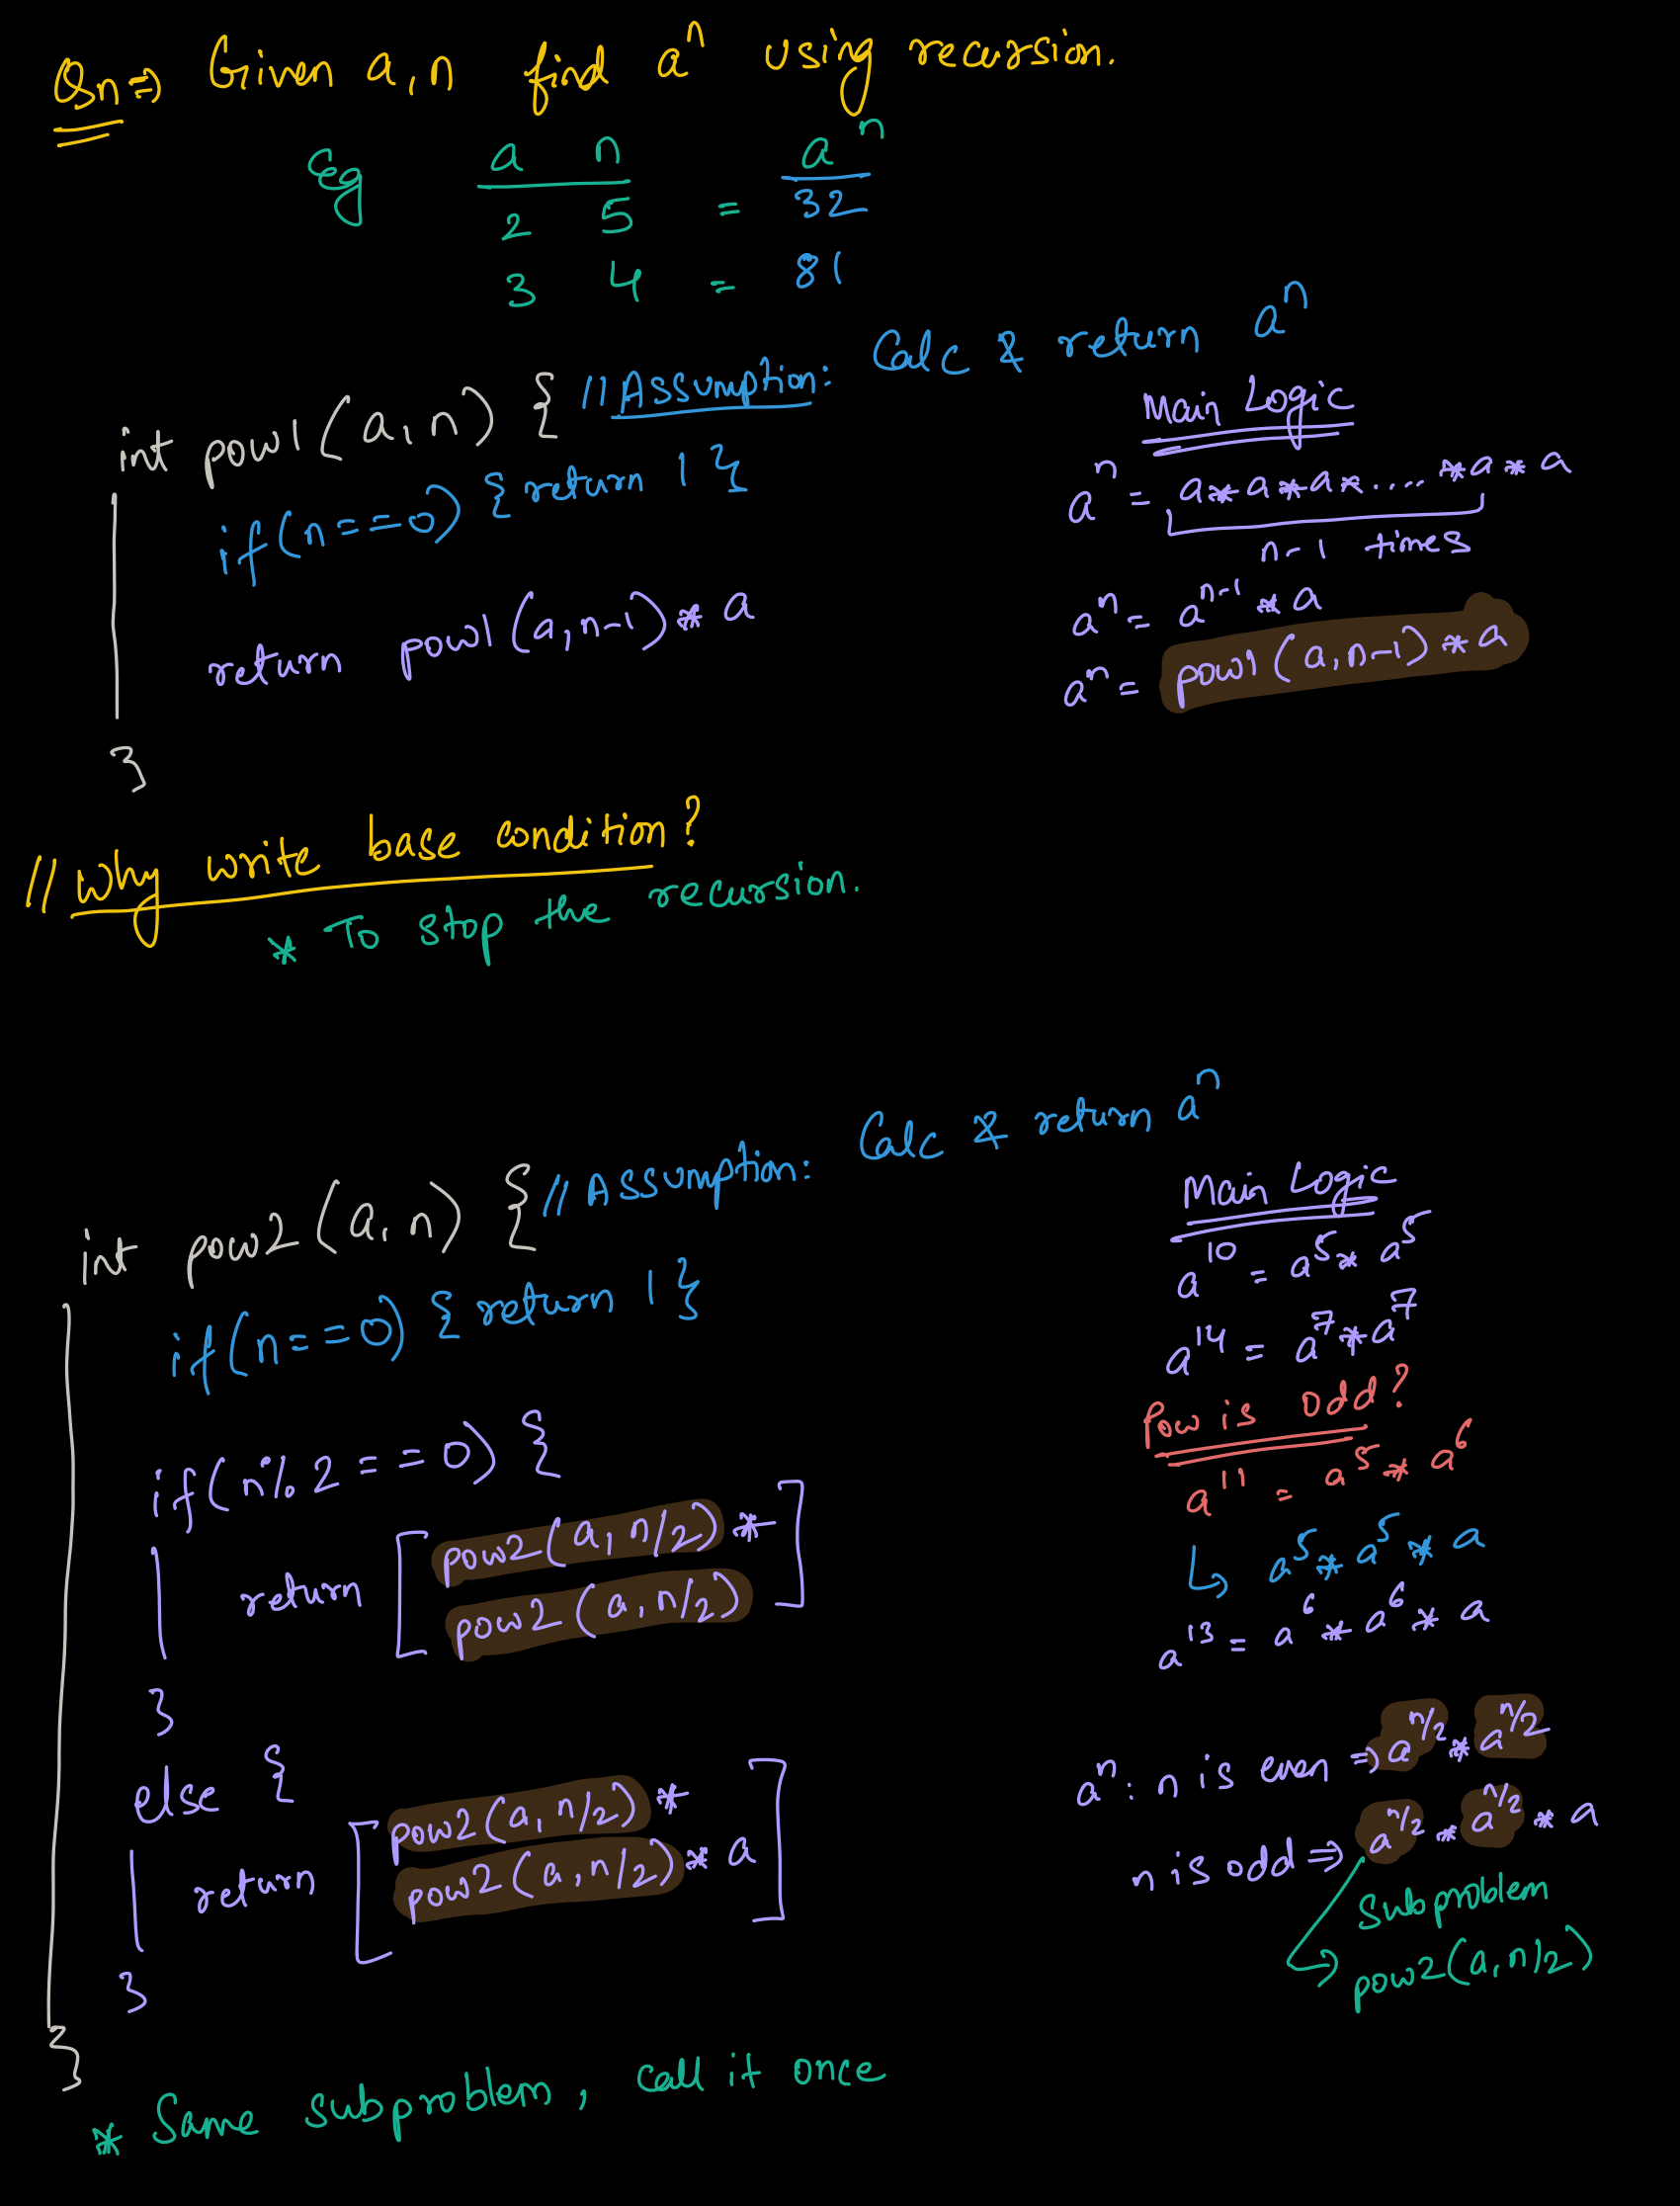 Qsn⇒ Given a,n find a^n using recursion.
Eg a n a^n
2 5 = 32
3 4 = 81
int pow1(a,n) { //Assumption: Calc & return a^n
if(n==0) {return 1}
return pow1(a,n-1)*a
}
Main Logic
a^n = a*a*a*....*a*a
n-1 times
a^n = a^n-1 * a
a^n = pow1(a,n-1)*a
//Why write base condition?
* To stop the recursion.
int pow2(a,n) { //Assumption: Calc & return a^n
if(n==0) {return 1}
if(n%2==0) {
return [pow2(a,n/2)*
pow2(a,n/2)]
}
else {
return [pow2(a,n/2)*
pow2(a,n/2)*a]
}
}
Main Logic
a^10 = a^5 * a^5
a^14 = a^7 * a^7
Pow is odd?
a^11 = a^5 * a^6
↳ a^5 * a^5 * a
a^13 = a^6 * a^6 * a
a^n: n is even ⇒ a^n/2 * a^n/2
n is odd ⇒ a^n/2 * a^n/2 * a
Subproblem
↳ pow2(a,n/2)
* Same subproblem, call it once